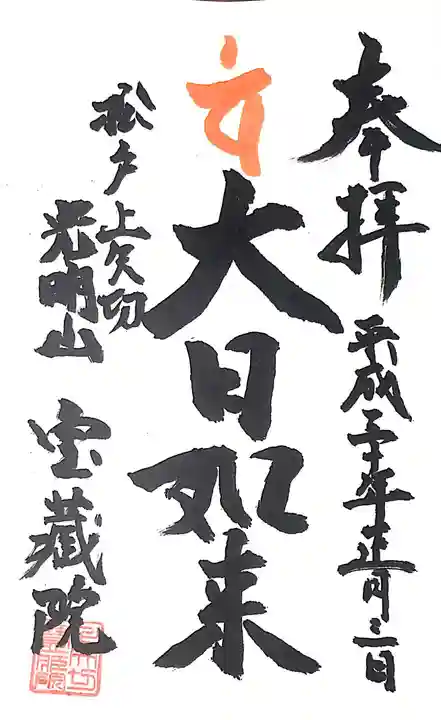 奉拝
平成三十年正月三日
大日如来
松戸上矢切
光明山
宝蔵院